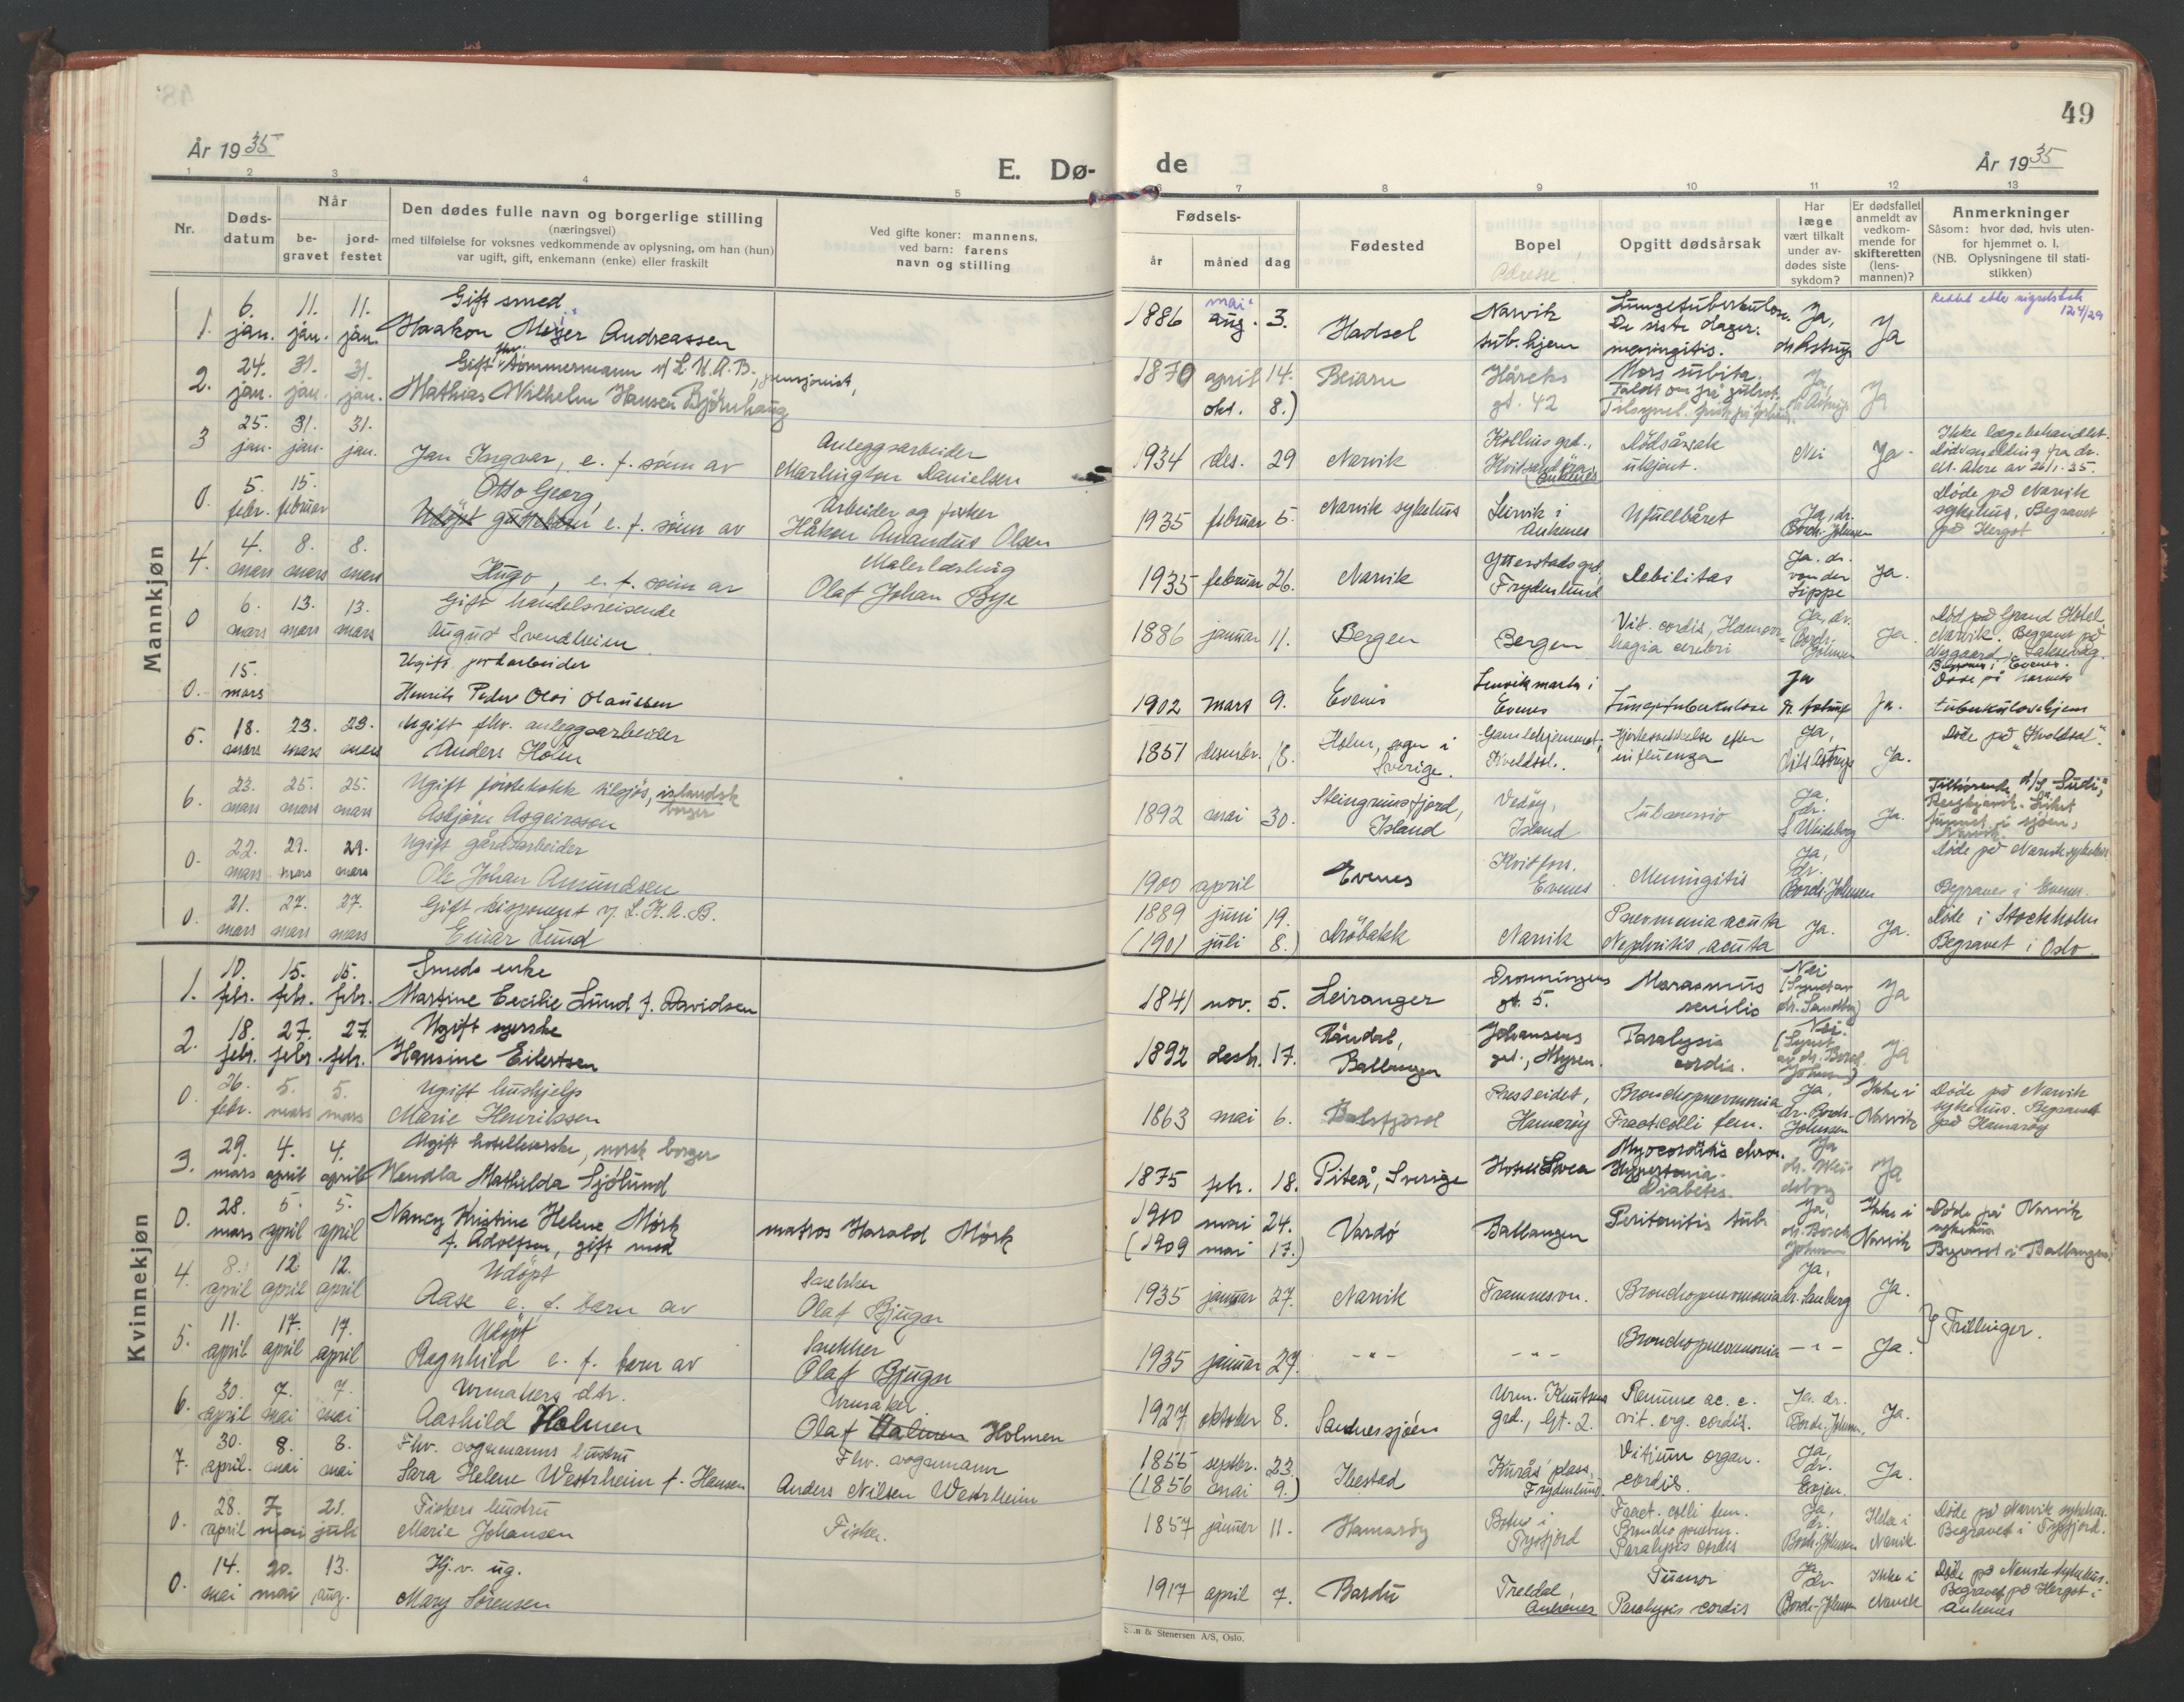 49
År 19 35
E. Dø-
de
År 19 35
1 2 3 4 5 6 7 8 9 10 11 12 13
Nr.
Døds-
datum
Når
be-
gravet
jord-
festet
Den dødes fulle navn og borgerlige stilling
(næringsvei)
med tilføielse for voksnes vedkommende av oplysning, om han (hun)
var ugift, gift, enkemann (enke) eller fraskilt
Ved gifte koner: mannens,
ved barn: farens
navn og stilling
Fødsels-
år måned dag
Fødested
Bopel
Adresse
Opgitt dødsårsak
Har
læge
vært tilkalt
under av-
dødes siste
sykdom?
Er dødsfallet
anmeldt av
vedkom-
mende for
skifteretten
(lens-
mannen)?
Anmerkninger
Såsom: hvor død, hvis uten-
for hjemmet o. l.
(NB. Oplysningene til stati-
stikken)
Mannkjøn
1. 6. jan. 11. jan. 11. jan.
Gift smed
Haakon Meyer Andreassen
1886 mai aug. 3. Hadsel
Narvik
tub. hjem
Lungetuberkulose.
De siste dager:
meningitis.
Ja,
dr. Astrup
Ja
2. 24. jan. 31. jan. 31. jan.
Gift fhv. tømmermann v/ L.K.A.B., pensjonist,
Mathias Wilhelm Hansen Bjørnhaug
1870 april 14.
okt. 8.)
Beiarn
Håreks
gt. 42
Mors subita.
Ja,
dr. Astrup
Ja
3 25. jan. 31. jan. 31. jan.
Jan Ingvar, e. f. sønn av
Anleggsarbeider
Marlington Danielsen
1934 des. 29 Narvik
Dødsårsak
ukjent.
Nei
Ja
Ikke lægebehandlet.
Dødsmelding fra dr.
av 26/1-35.
0. 5. febr. 15. februar
Otto Georg,
Udøpt guttebarn e. f. sønn av
Arbeider og fisker
Håkon Amandus Olsen
1935 februar 5. Narvik sykehus
Leirvik i
Ankenes
Ufullbåret
Ja, dr.
Borch-Johnsen
Døde på Narvik
sykehus. Begravet
på Hergot
4. 4. mars 8. mars 8. mars
Hugo, e. f. sønn av
Malerlærling
Olaf Johan Bye
1935 februar 26. Narvik
Ytterstads grd,
Frydenlund
Debilitas
Ja. dr.
von der
Lippe
Ja.
0 6. mars 13. mars 13. mars
Gift handelsreisende
August Svendheim
1886 januar 11. Bergen
Bergen
Vit. cordis, Hæmor-
hagia cerebri
Ja, dr.
Borch-
Johnsen
Ja.
Død på Grand Hotel,
Narvik. Begravet på
Nygaard, Laksevåg.
0. 15. mars
Ugift jordarbeider
Henrik Peder Olai Olaussen
1902 mars 9. Evenes
Lenvikmark i
Evenes
Lungetuberkulose
Ja
dr. Astrup
Ja.
Begraves i Evenes.
Døde på Narvik
tuberkulosehjem
5. 18. mars 23. mars 23. mars
Ugift fhv. anleggsarbeider
Anders Holm
1851 desember. 18. Holm, sogn i
Sverige.
Gamlehjemmet,
Kveldsol.
Hjertesvekkelse efter
influenza
Ja,
Nils Astrup
Ja.
Døde på "Kveldsol".
6. 23. mars 25. mars 25. mars
Ugift førstekokk tilsjøs, islandsk
borger
Asbjørn Asgeirsson
1892 mai 30. Steingrimsfjord,
Island
Island
Submersio
Ja,
dr.
S Weideborg
Ja.
Tilhørende d/s "Sudi",
Reykjavik. Liket
funnet i sjøen,
Narvik.
0. 22. mars 29. mars 29. mars
Ugift gårdsarbeider
Ole Johan Amundsen
1900 april Evenes
Kvitfors,
Evenes
Meningitis
Ja,
dr.
Borch-Johnsen
Døde på Narvik sykehus
Begraves i Evenes.
0. 21. mars 27. mars 27. mars
Gift disponent v. L.K.A.B.
Einar Lund
1889 juni 19.
(1901 juli 8.)
Drøbakk
Narvik
Pneumonia acuta
Nephritis acuta
Ja. Ja.
Døde i Stockholm
Begravet i Oslo.
Kvinnekjøn
1. 10. febr. 15. febr. 15. febr.
Smeds enke
Martine Cecilie Lund f. Davidsen
1841 nov. 5. Leiranger
Dronningens
gt. 5.
Marasmus
senilis
Nei
(Synet av
dr. Sandberg)
Ja
2. 18. febr. 27. febr. 27. febr.
Ugift syerske
Hansine Eilertsen
1892 desbr. 17. Råndal,
Ballangen
Johansens
grd., Myren.
Paralysis
cordis.
Nei.
(Synet
av dr. Borch
Johnsen)
Ja
0. 26. febr. 5. mars 5. mars
Ugift hushjelp
Marie Henrikssen
1863 mai 6. Balsfjord
Presteidet,
Hamarøy
Bronchopneumonia
Fract. colli fem.
Ja,
dr. Borch-
Johnsen
Ikke i
Narvik
Døde på Narvik
sykehus. Begravet
på Hamarøy
3. 29. mars 4. april 4. april
Ugift hotellværske, norsk borger
Wendla Mathilda Sjölund
1875 febr. 18. Piteå, Sverige
Hotell Svea
Myocarditis chron.
Hypertonia.
Diabetes.
Ja
dr. Wei-
deborg
Ja
0. 28. mars 5. april 5. april
Nancy Kristine Helene Mörk
f. Adolfsen, gift med
matros Harald Mörk
1910 mai 24.
(1909 mai 17.)
Vardö
Ballangen
Peritonitis tub.
Ja,
dr. Borch
Johnsen
Ikke i
Narvik
Døde på Narvik
sykehus
Begravet i Ballangen.
4. 8. april 12. april 12. april
Udöpt
Aase e. f. barn av
Snekker
Olaf Bjugn
1935 januar 27. Narvik
Framnesvn.
Bronchopneumonia
Ja,
dr. Sanberg
Ja.
} Trillinger.
5. 11. april 17. april 17. april
Udöpt
Ragnhild e. f. barn av
Snekker
Olaf Bjugn
1935 januar 27. -"- -"-
Bronchopneumonia -"- Ja.
6. 30. april 7. mai 7. mai
Urmakers dtr.
Aashild Holmen
Urmaker
Olaf Holmen
1927 oktober 8. Sandnessjøen
Urm. Knutsens
grd., gt. 2.
vit. org. cordis.
Ja. dr.
Borch-Johnsen.
Ja.
7. 30. april. 8. mai 8. mai
Fhv. vognmanns hustru
Sara Helene Westrheim f. Hansen
Fhv. vognmann
Anders Nilsen Westrheim
1855 septbr. 23.
(1856 mai 9.)
Ibestad
Kurås plass,
Frydenlund.
Vitium organ.
cordis.
Ja,
dr.
Evjen.
Ja.
0. 28. april 7. mai 21. juli
Fiskers hustru
Marie Johansen
Fisker.
1857 januar 11. Hamarøy
Botn i
Tysfjord
Fract. colli fem.
Broncho pneum.
Paralysis cordis
Ja,
dr.
Borch-Johnsen
Ikke i
Narvik
Døde på Narvik sykehus.
Begravet i Tysfjord.
0. 14. mai 20. mai 13. aug.
Hj. v. ug.
Mary Sørensen
1917 april 7. Bardu
Treldal,
Ankenes
Tumor
Paralysis cordis
Ja,
dr
Borch-Johnsen
Ikke i
Narvik
Døde på Narvik sykehus.
Begravet på Hergot i
Ankenes
& Stenersen A/S, Oslo.